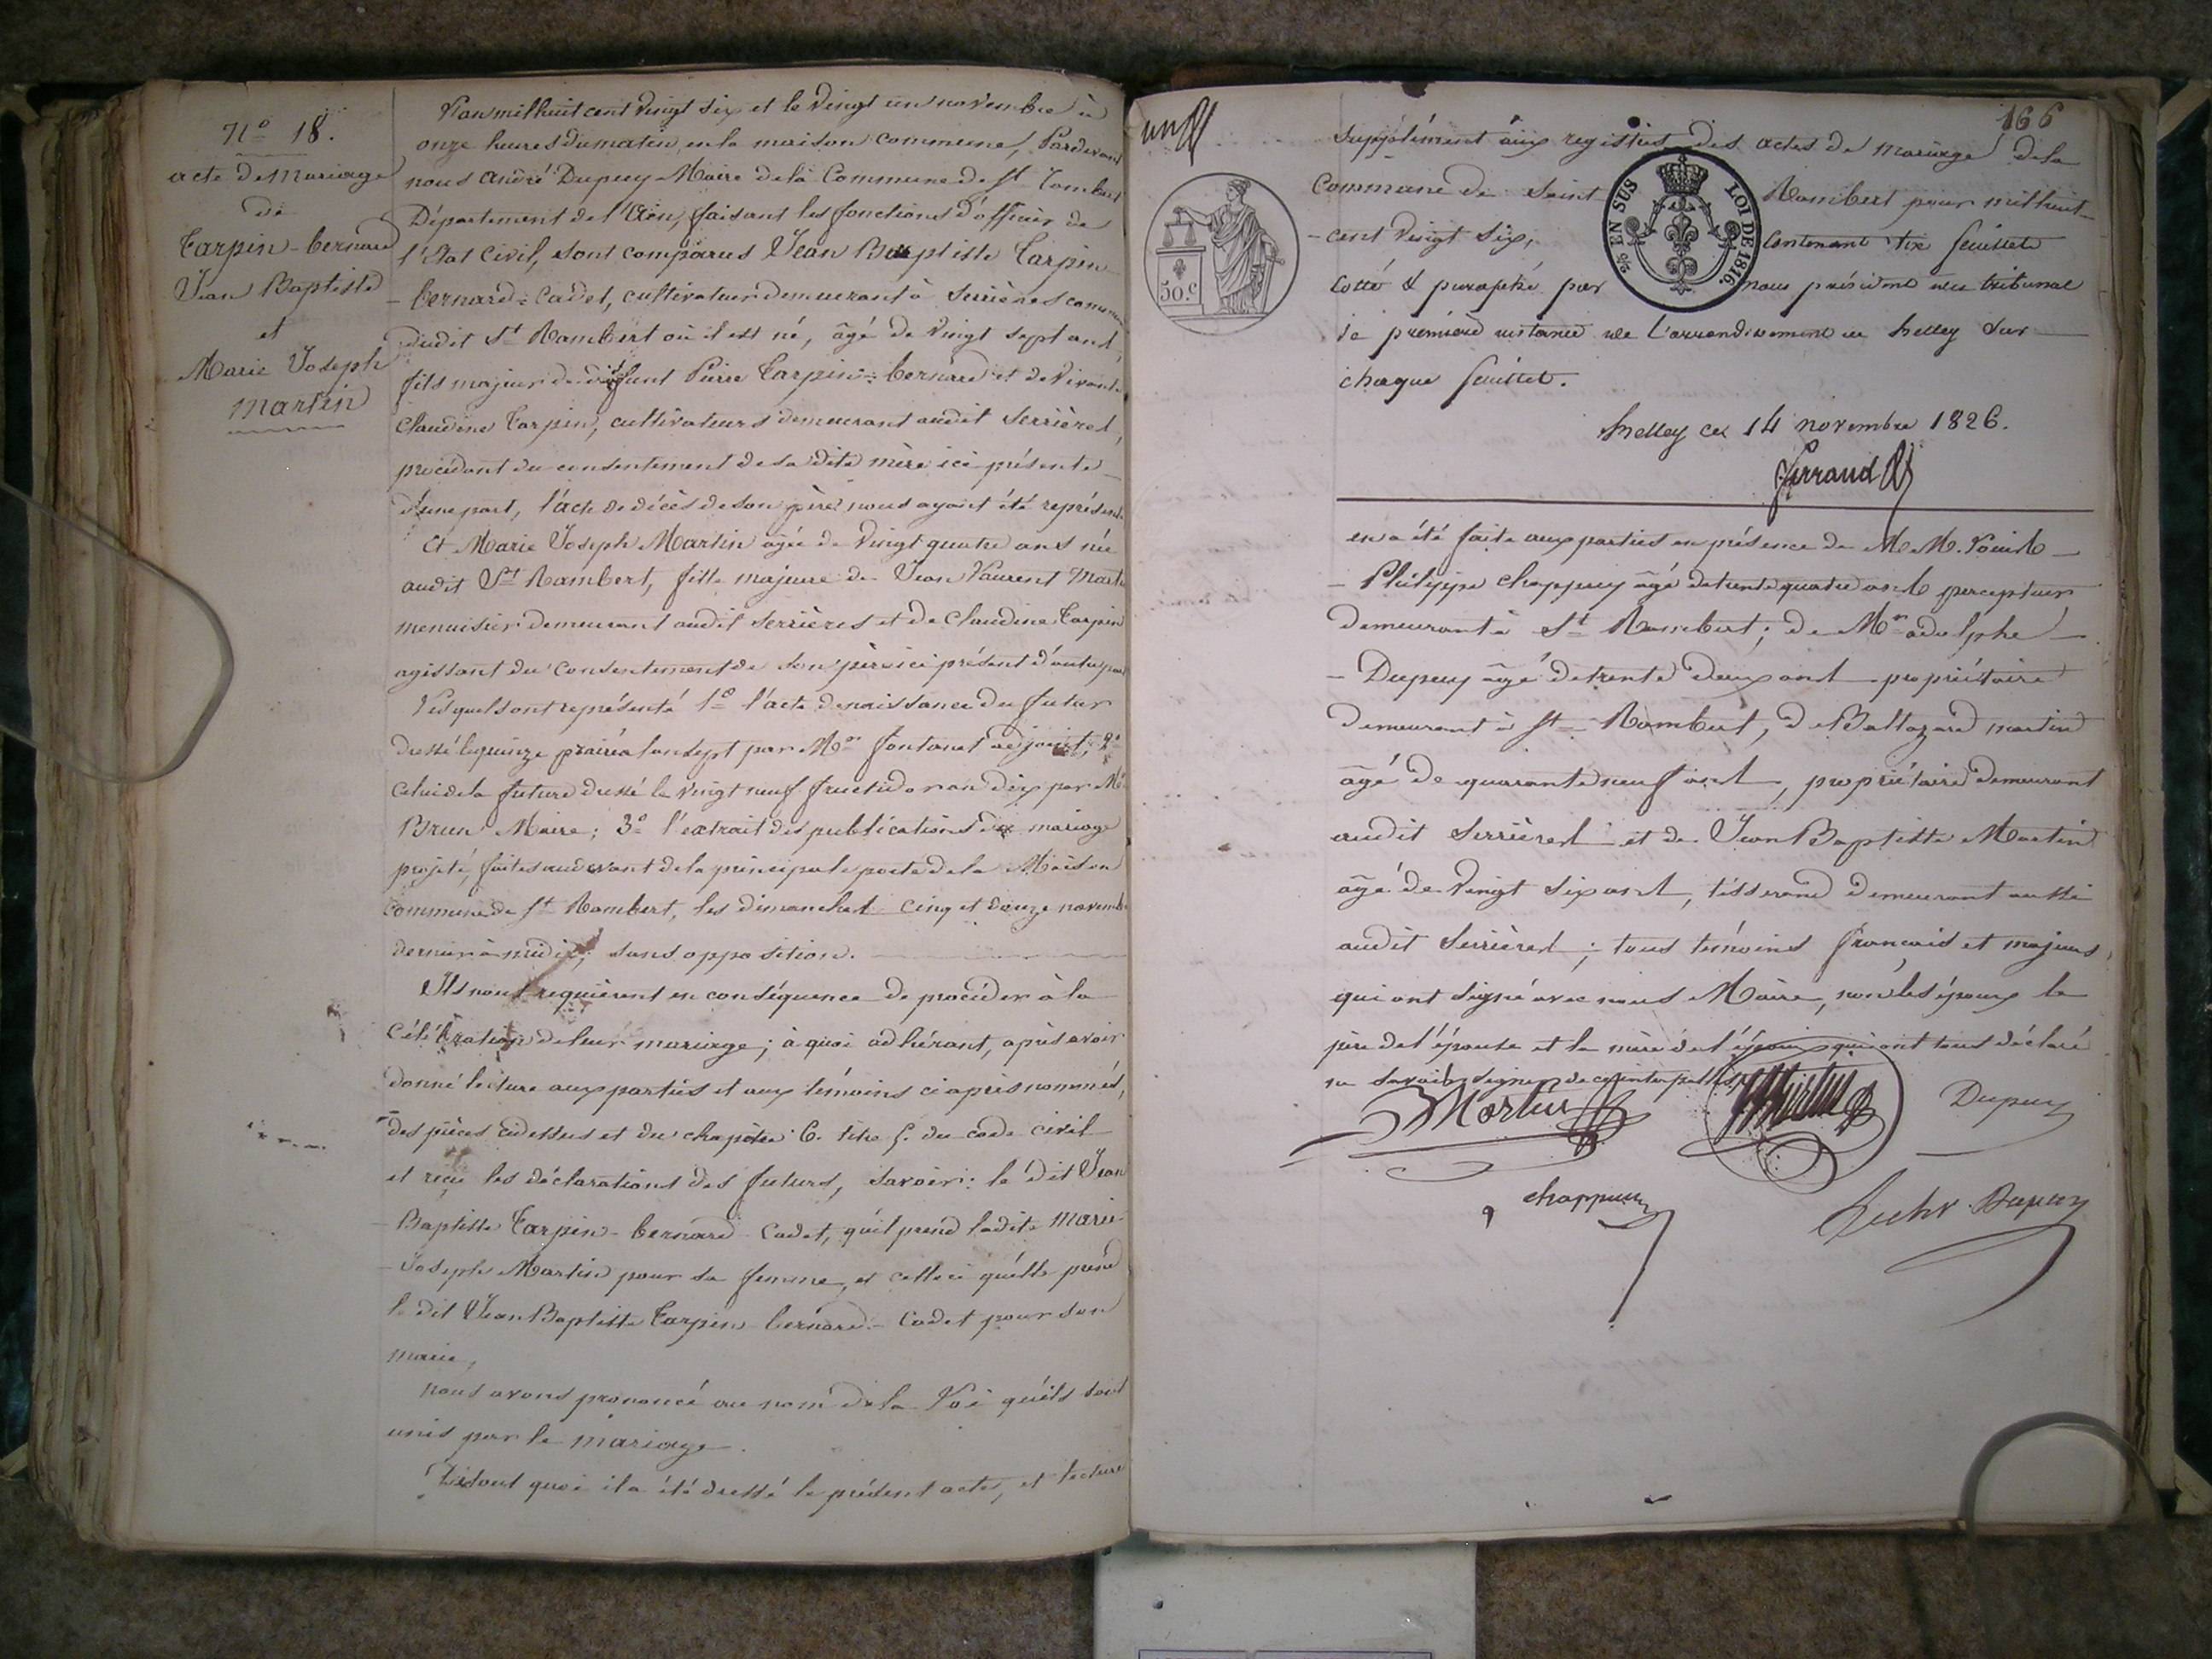 N° 18.
acte de Mariage
de
Tarpin-bernard
Jean Baptiste
et
Marie Joseph
Martin
L'an mil huit cent vingt six et le vingt un novembre à
onze heures du matin, en la maison commune, Pardevant
nous André Dupuy Maire de la Commune de St Rambert
Département de l'Ain, faisant les fonctions d'officier de
l'état Civil, sont comparus Jean Baptiste Tarpin
-bernard-Cadet, cultivateur demeurant à Serrières commune
dudit St Rambert où il est né, âgé de vingt sept ans,
fils majeur de défunt Pierre Tarpin-bernard et de vivante
Claudine Tarpin, cultivateurs demeurant audit Serrières,
procédant du consentement de sa dite mère ici présente
d'une part, l'acte de décès de son père nous ayant été représenté
Et Marie Joseph Martin agée de vingt quatre ans née
audit St Rambert, fille majeure de Jean Laurent Martin
menuisier demeurant audit Serrières et de Claudine Tarpin
agissant du consentement de son père ici présent d'autre part
Lesquels ont représenté 1° l'acte de naissance du futur
dressé le quinze prairéal an sept par Mr fontanet adjoint; 2°
celui de la future dressé le vingt neuf fructidor an dix par Mr
Brun Maire; 3° l'extrait des publications du mariage
projeté, faites au devant de la principale porte de la Maison
commune de St Rambert, les dimanches cinq et douze novembre
dernier à midi, sans opposition.
Ils nous requièrent en conséquence de procéder à la
célébration de leur mariage; à quoi adhérant, après avoir
donné lecture aux parties et aux témoins ci après nommés,
des pièces cidessus et du chapitre 6. titre 5. du code civil
et reçu les déclarations des futurs, savoir: le dit Jean
-Baptiste Tarpin-bernard-Cadet, qu'il prend ladite Marie
-Joseph Martin pour sa femme, et celle ci qu'elle prend
le dit Jean Baptiste Tarpin-bernard-Cadet pour son
marie,
nous avons prononcé au nom de la Loi qu'ils sont
unis par le mariage.
De tout quoi il a été dressé le présent acte, et lecture
un
166
50.c
2/10 EN SUS
LOI DE 1816.
Supplément aux registres des actes de mariage de la
Commune de Saint Rambert pour mil huit
-cent vingt six, Contenant six feuillets
cotté & paraphé par nous président du tribunal
de première instance de l'arrondissement de belley sur
chaque feuillet.
belley ce 14 novembre 1826.
ferraud
en a été faite aux parties en présence de M.M. Louis
-Philippe Chappuy âgé de trente quatre ans percepteur
demeurant à St Rambert; de Mr adolphe
-Dupuy âgé de trente deux ans propriétaire
demeurant à St Rambert, de Baltazard martin
âgé de quarante neuf ans, propriétaire demeurant
audit Serrières et de Jean Baptiste Martin
âgé de vingt six ans, tisserand demeurant aussi
audit Serrières; tous témoins français et majeurs,
qui ont signé avec nous Maire, non les époux le
père de l'épouse et la mère de l'époux qui ont tous déclaré
ne savoir signer de ce interpellés
BMartin
Martin
Dupuy
chappuy
Dupuy